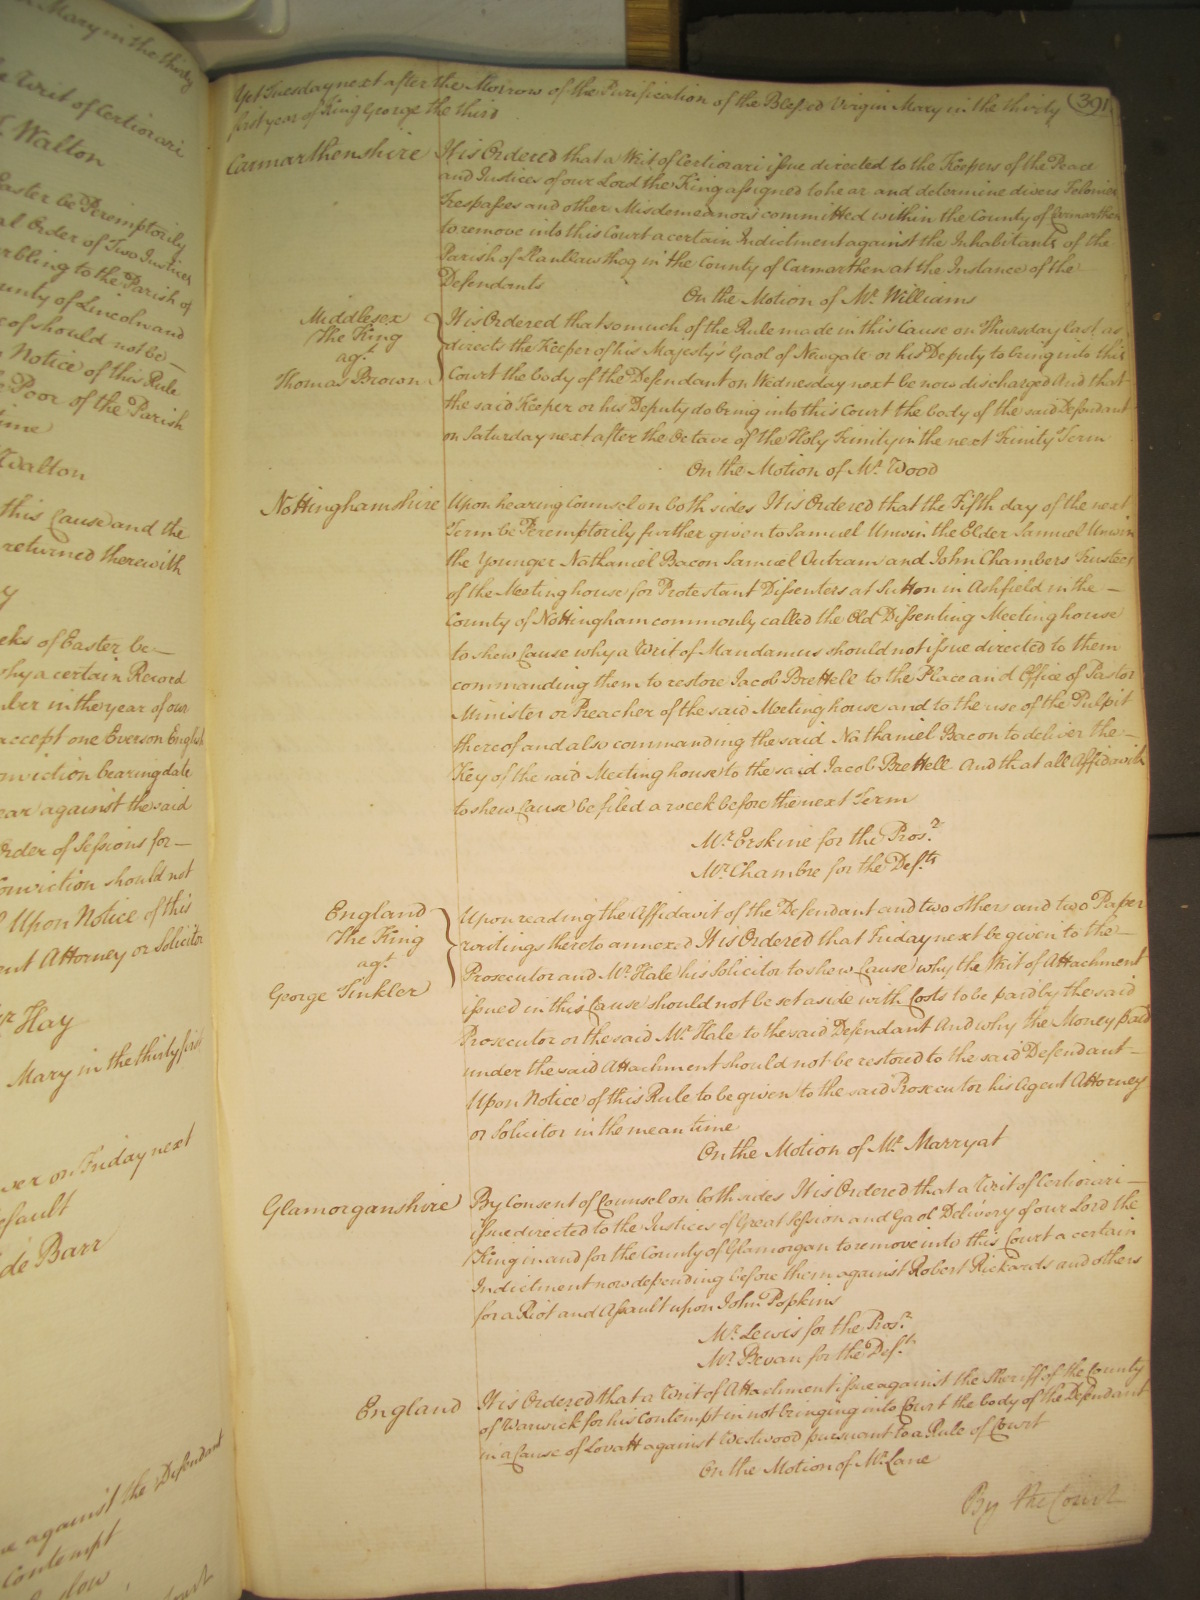 Mary in the thirty
Writ of Certiorari
Walton
Easter be Peremptorily
al Order of Two Justices
to the Parish of
unty of Lincoln and
of should not be
Notice of this Rule
Poor of the Parish
time
Walton
this Cause and the
returned therewith
eks of Easter be
why a certain Record
ber in the year of our
accept one Everson English
onviction bearing date
ear against the said
Order of Sessions for
Conviction should not
Upon Notice of this
ent Attorney or Solicitor
Mr Hay
Mary in the thirty first
on Friday next
efault
de Barr
against the Defendant
Contempt
Court
Yet Tuesday next after the Morrow of the Purification of the Blessed Virgin Mary in the thirty (391
first year of King George the third
Carmarthenshire It is Ordered that a Writ of Certiorari issue directed to the Keepers of the Peace
and Justices of our Lord the King assigned to hear and determine divers Felonies
Trespasses and other Misdemeanors committed within the County of Carmarthen
to remove into this Court a certain Indictment against the Inhabitants of the
Parish of in the County of Carmarthen at the Instance of the
Defendants
On the Motion of Mr. Williams
Middlesex
The King
agt.
Thomas Brown
It is Ordered that so much of the Rule made in this Cause on Thursday last as
directs the Keeper of his Majesty's Gaol of Newgate or his Deputy to bring into this
Court the body of the Defendant on Wednesday next be now discharged And that
the said Keeper or his Deputy do bring into this Court the body of the said Defendant
on Saturday next after the Octave of the Holy Trinity in the next Trinity Term
On the Motion of Mr. Wood
Nottinghamshire Upon hearing Counsel on both sides It is Ordered that the Fifth day of the next
Term be Peremptorily further given to Samuel Unwin the Elder Samuel Unwin
the Younger Nathaniel Bacon Samuel Outram and John Chambers Trustees
of the Meeting house for Protestant Dissenters at Sutton in Ashfield in the
County of Nottingham commonly called the Old Dissenting Meeting house
to shew Cause why a Writ of Mandamus should not issue directed to them
commanding them to restore Jacob Brettell to the Place and Office of Pastor
Minister or Preacher of the said Meeting house and to the use of the Pulpit
thereof and also commanding the said Nathaniel Bacon to deliver the
Key of the said Meeting house to the said Jacob Brettell And that all Affidavits
to shew Cause be filed a week before the next Term
Mr. Erskine for the Prosr.
Mr. Chambre for the Defts.
England
The King
agt.
George Tinkler
Upon reading the Affidavit of the Defendant and two others and two Paper
writings thereto annexed It is Ordered that Friday next be given to the
Prosecutor and Mr. Hale his Solicitor to shew Cause why the Writ of Attachment
issued in this Cause should not be set aside with Costs to be paid by the said
Prosecutor or the said Mr. Hale to the said Defendant And why the Money paid
under the said Attachment should not be restored to the said Defendant
Upon Notice of this Rule to be given to the said Prosecutor his Agent Attorney
or Solicitor in the mean time
On the Motion of Mr. Marryat
Glamorganshire By Consent of Counsel on both sides It is Ordered that a Writ of Certiorari
issue directed to the Justices of Great Session and Gaol Delivery of our Lord the
King in and for the County of Glamorgan to remove into this Court a certain
Indictment now depending before them against Robert Rickards and others
for a Riot and Assault upon John Popkins
Mr. Lewis for the Prosr.
Mr. Bevan for the Deft.
England It is Ordered that a Writ of Attachment issue against the Sheriff of the County
of Warwick for his Contempt in not bringing into Court the body of the Defendant
in a Cause of Lovatt against Westwood pursuant to a Rule of Court
On the Motion of Mr. Lane
By the Court